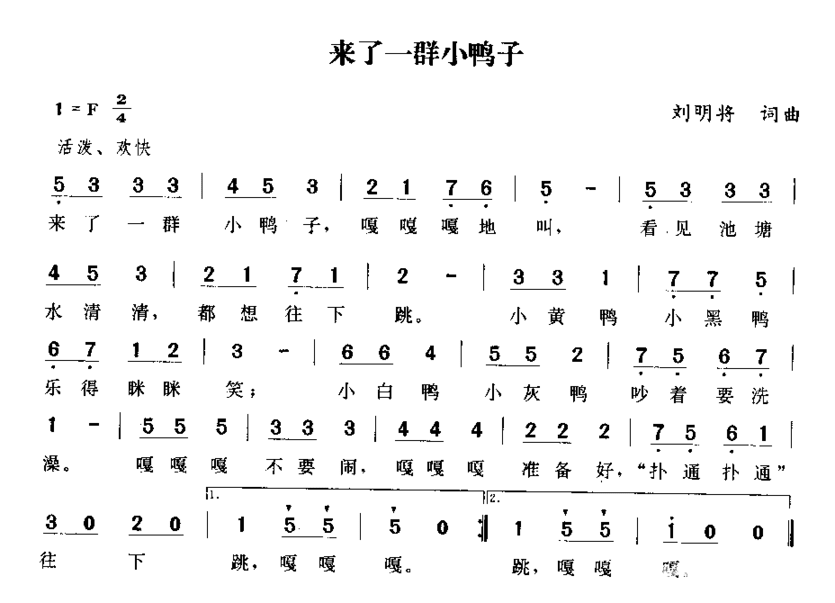 来了一群小鸭子
1 = F 2/4
刘明将 词曲
活泼、欢快
5 3 3 3 | 4 5 3 | 2 1 7 6 | 5 - | 5 3 3 3 |
来了一群 小鸭子, 嘎嘎嘎地 叫, 看见池塘
4 5 3 | 2 1 7 1 | 2 - | 3 3 1 | 7 7 5 |
水清清, 都想往下 跳。 小黄鸭 小黑鸭
6 7 1 2 | 3 - | 6 6 4 | 5 5 2 | 7 5 6 7 |
乐得眯眯 笑; 小白鸭 小灰鸭 吵着要洗
1 - | 5 5 5 | 3 3 3 | 4 4 4 | 2 2 2 | 7 5 6 1 |
澡。 嘎嘎嘎 不要闹, 嘎嘎嘎 准备好, “扑通扑通”
1. 2.
3 0 2 0 | 1 5 5 | 5 0 :‖ 1 5 5 | i 0 0 ‖
往 下 跳, 嘎嘎 嘎。 跳, 嘎嘎 嘎。